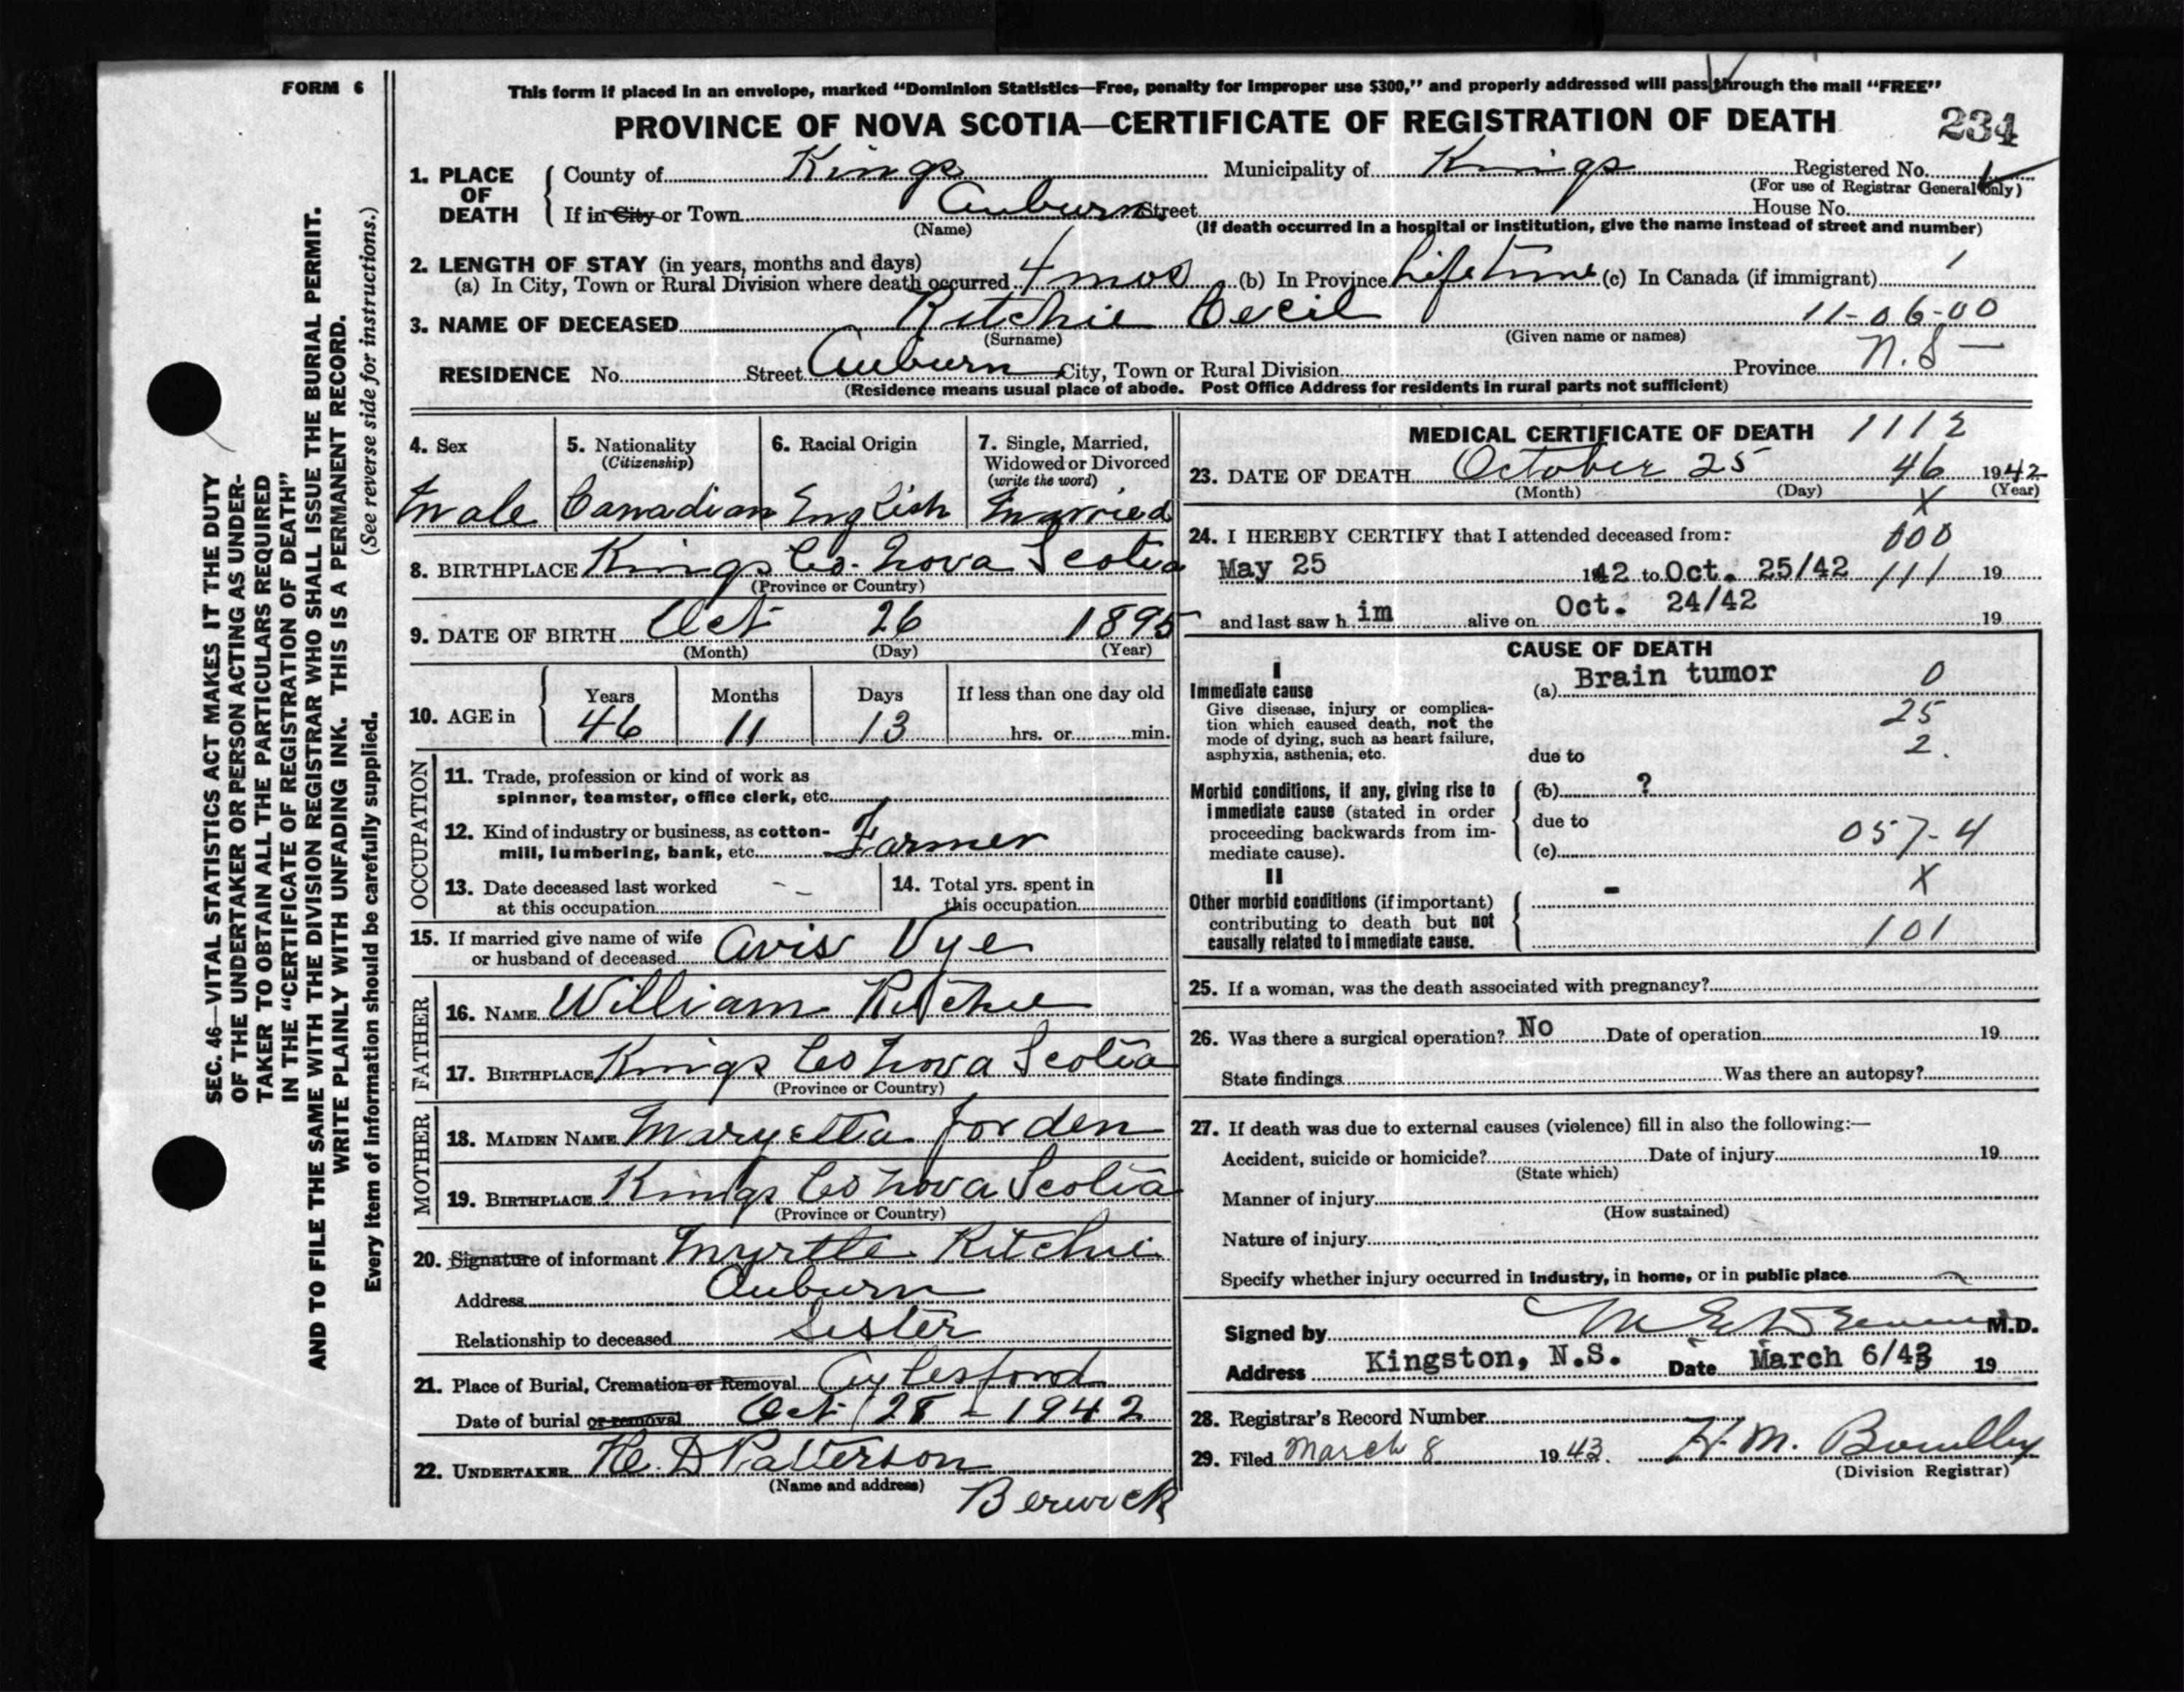 FORM 6
This form if placed in an envelope, marked “Dominion Statistics—Free, penalty for improper use $300,” and properly addressed will pass through the mail “FREE”
PROVINCE OF NOVA SCOTIA—CERTIFICATE OF REGISTRATION OF DEATH 234
1. PLACE OF DEATH
County of Kings Municipality of Kings Registered No.
(For use of Registrar General only)
If in City or Town Auburn Street House No.
(Name) (If death occurred in a hospital or institution, give the name instead of street and number)
2. LENGTH OF STAY (in years, months and days)
(a) In City, Town or Rural Division where death occurred 4 mos (b) In Province Lifetime (c) In Canada (if immigrant) 1
3. NAME OF DECEASED Ritchie Cecil 11-06-00
(Surname) (Given name or names)
RESIDENCE No. Street Auburn City, Town or Rural Division Province N.S—
(Residence means usual place of abode. Post Office Address for residents in rural parts not sufficient)
4. Sex
Male
5. Nationality
(Citizenship)
Canadian
6. Racial Origin
English
7. Single, Married,
Widowed or Divorced
(write the word)
Married
8. BIRTHPLACE Kings Co. Nova Scotia
(Province or Country)
9. DATE OF BIRTH Oct 26 1895
(Month) (Day) (Year)
10. AGE in
Years Months Days If less than one day old
46 11 13 hrs. or min.
OCCUPATION
11. Trade, profession or kind of work as
spinner, teamster, office clerk, etc.
12. Kind of industry or business, as cotton-
mill, lumbering, bank, etc. Farmer
13. Date deceased last worked
at this occupation
14. Total yrs. spent in
this occupation
15. If married give name of wife
or husband of deceased Avis Vye
FATHER
16. NAME William Ritchie
17. BIRTHPLACE Kings Co Nova Scotia
(Province or Country)
MOTHER
18. MAIDEN NAME Maryetta Jorden
19. BIRTHPLACE Kings Co Nova Scotia
(Province or Country)
20. Signature of informant Myrtle Ritchie
Address Auburn
Relationship to deceased Sister
21. Place of Burial, Cremation or Removal Aylesford
Date of burial or removal Oct 28 - 1942
22. UNDERTAKER He. D Patterson
(Name and address)
Berwick
MEDICAL CERTIFICATE OF DEATH 1112
23. DATE OF DEATH October 25 46 1942
(Month) (Day) (Year)
X
24. I HEREBY CERTIFY that I attended deceased from:
000
May 25 1942 to Oct. 25/42 111 19
and last saw h im alive on Oct. 24/42 19
CAUSE OF DEATH
I
Immediate cause
Give disease, injury or complica-
tion which caused death, not the
mode of dying, such as heart failure,
asphyxia, asthenia, etc.
(a) Brain tumor 0
25
2.
due to
Morbid conditions, if any, giving rise to
immediate cause (stated in order
proceeding backwards from im-
mediate cause).
(b) ?
due to
(c) 057-4
II
Other morbid conditions (if important)
contributing to death but not
causally related to immediate cause.
X
-
101
25. If a woman, was the death associated with pregnancy?
26. Was there a surgical operation? No Date of operation 19
State findings Was there an autopsy?
27. If death was due to external causes (violence) fill in also the following:—
Accident, suicide or homicide? Date of injury 19
(State which)
Manner of injury
(How sustained)
Nature of injury
Specify whether injury occurred in industry, in home, or in public place
Signed by M.D.
Address Kingston, N.S. Date March 6/43 19
28. Registrar’s Record Number
29. Filed March 8 1943. H. M.
(Division Registrar)
SEC. 46—VITAL STATISTICS ACT MAKES IT THE DUTY
OF THE UNDERTAKER OR PERSON ACTING AS UNDER-
TAKER TO OBTAIN ALL THE PARTICULARS REQUIRED
IN THE “CERTIFICATE OF REGISTRATION OF DEATH”
AND TO FILE THE SAME WITH THE DIVISION REGISTRAR WHO SHALL ISSUE THE BURIAL PERMIT.
WRITE PLAINLY WITH UNFADING INK. THIS IS A PERMANENT RECORD.
Every item of information should be carefully supplied. (See reverse side for instructions.)